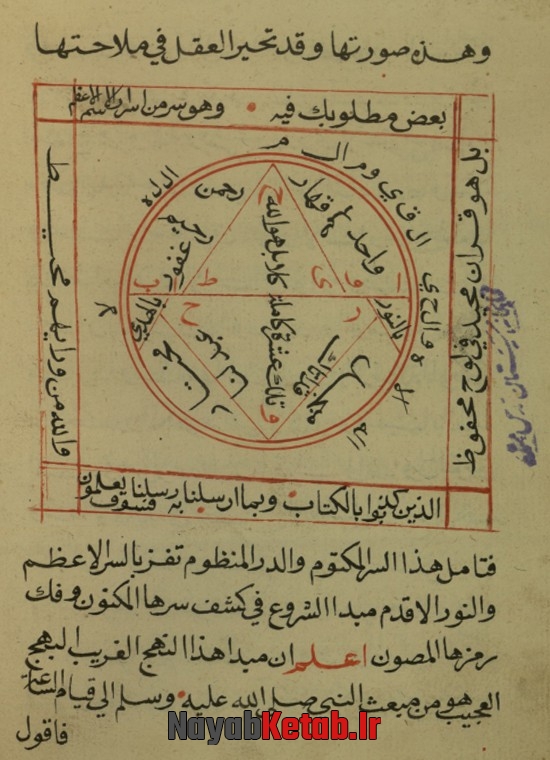 وهذه صورتها وقد تحير العقل في ملاحتها
بعض مطلوبك فيه وهو سر من اسرار الاسم الاعظم
بل هو قران مجيد في لوح محفوظ
والله من ورايهم محيط
رحمن
واحد قهار
غفور
بالنور
بالهدي
كلا بل هو الله
وتلك عشرة كاملة
الذين كذبوا بالكتاب وبما ارسلنا به رسلنا فسوف يعلمون
فتامل هذا السر المكتوم والدر المنظوم تفز بالسر الاعظم
والنور الاقدم مبدا الشروع في كشف سرها المكنون وفك
رمزها المصون اعلم ان مبدا هذا النهج الغريب البهج
العجيب هو من مبعث النبي صلي الله عليه وسلم الي قيام الساعة
فاقول
NayabKetab.Ir